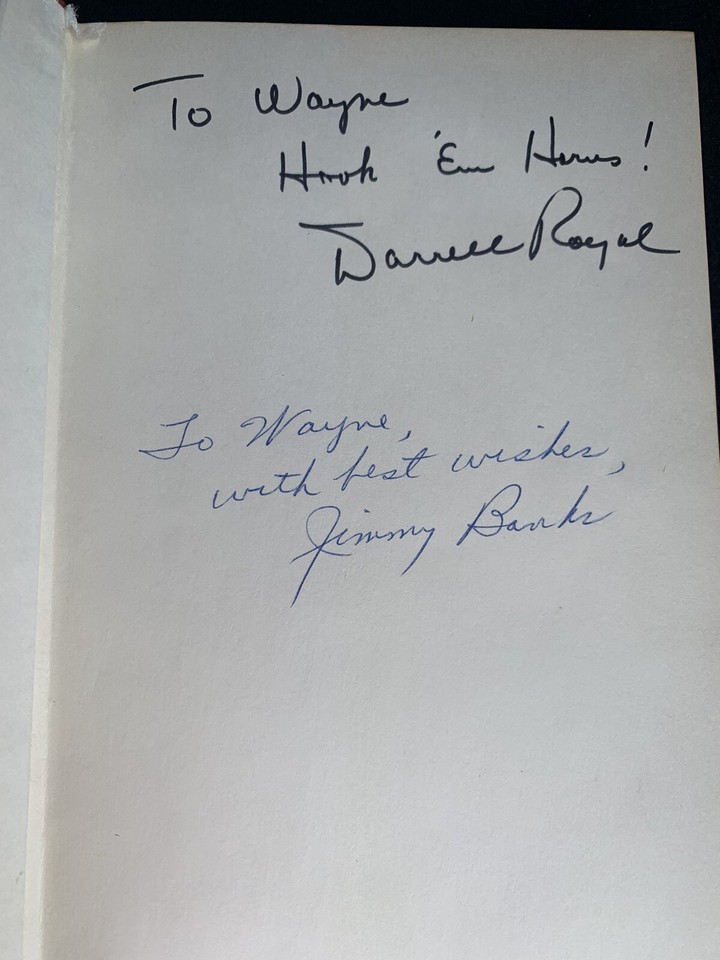 To Wayne
Hook 'Em Horns!
Darrell Royal
To Wayne,
with best wishes,
Jimmy Banks